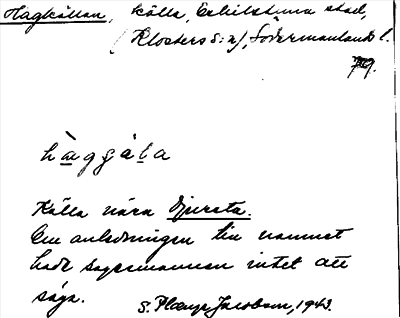 Hagkällan, källa, Eskilstuna stad,
(Klosters s:n), Södermanlands l.
79.
häggála
Källa nära Djursta.
Om anledningen till namnet
hade sagesmannen intet att
säga. S. Plænge Jacobson, 1943.